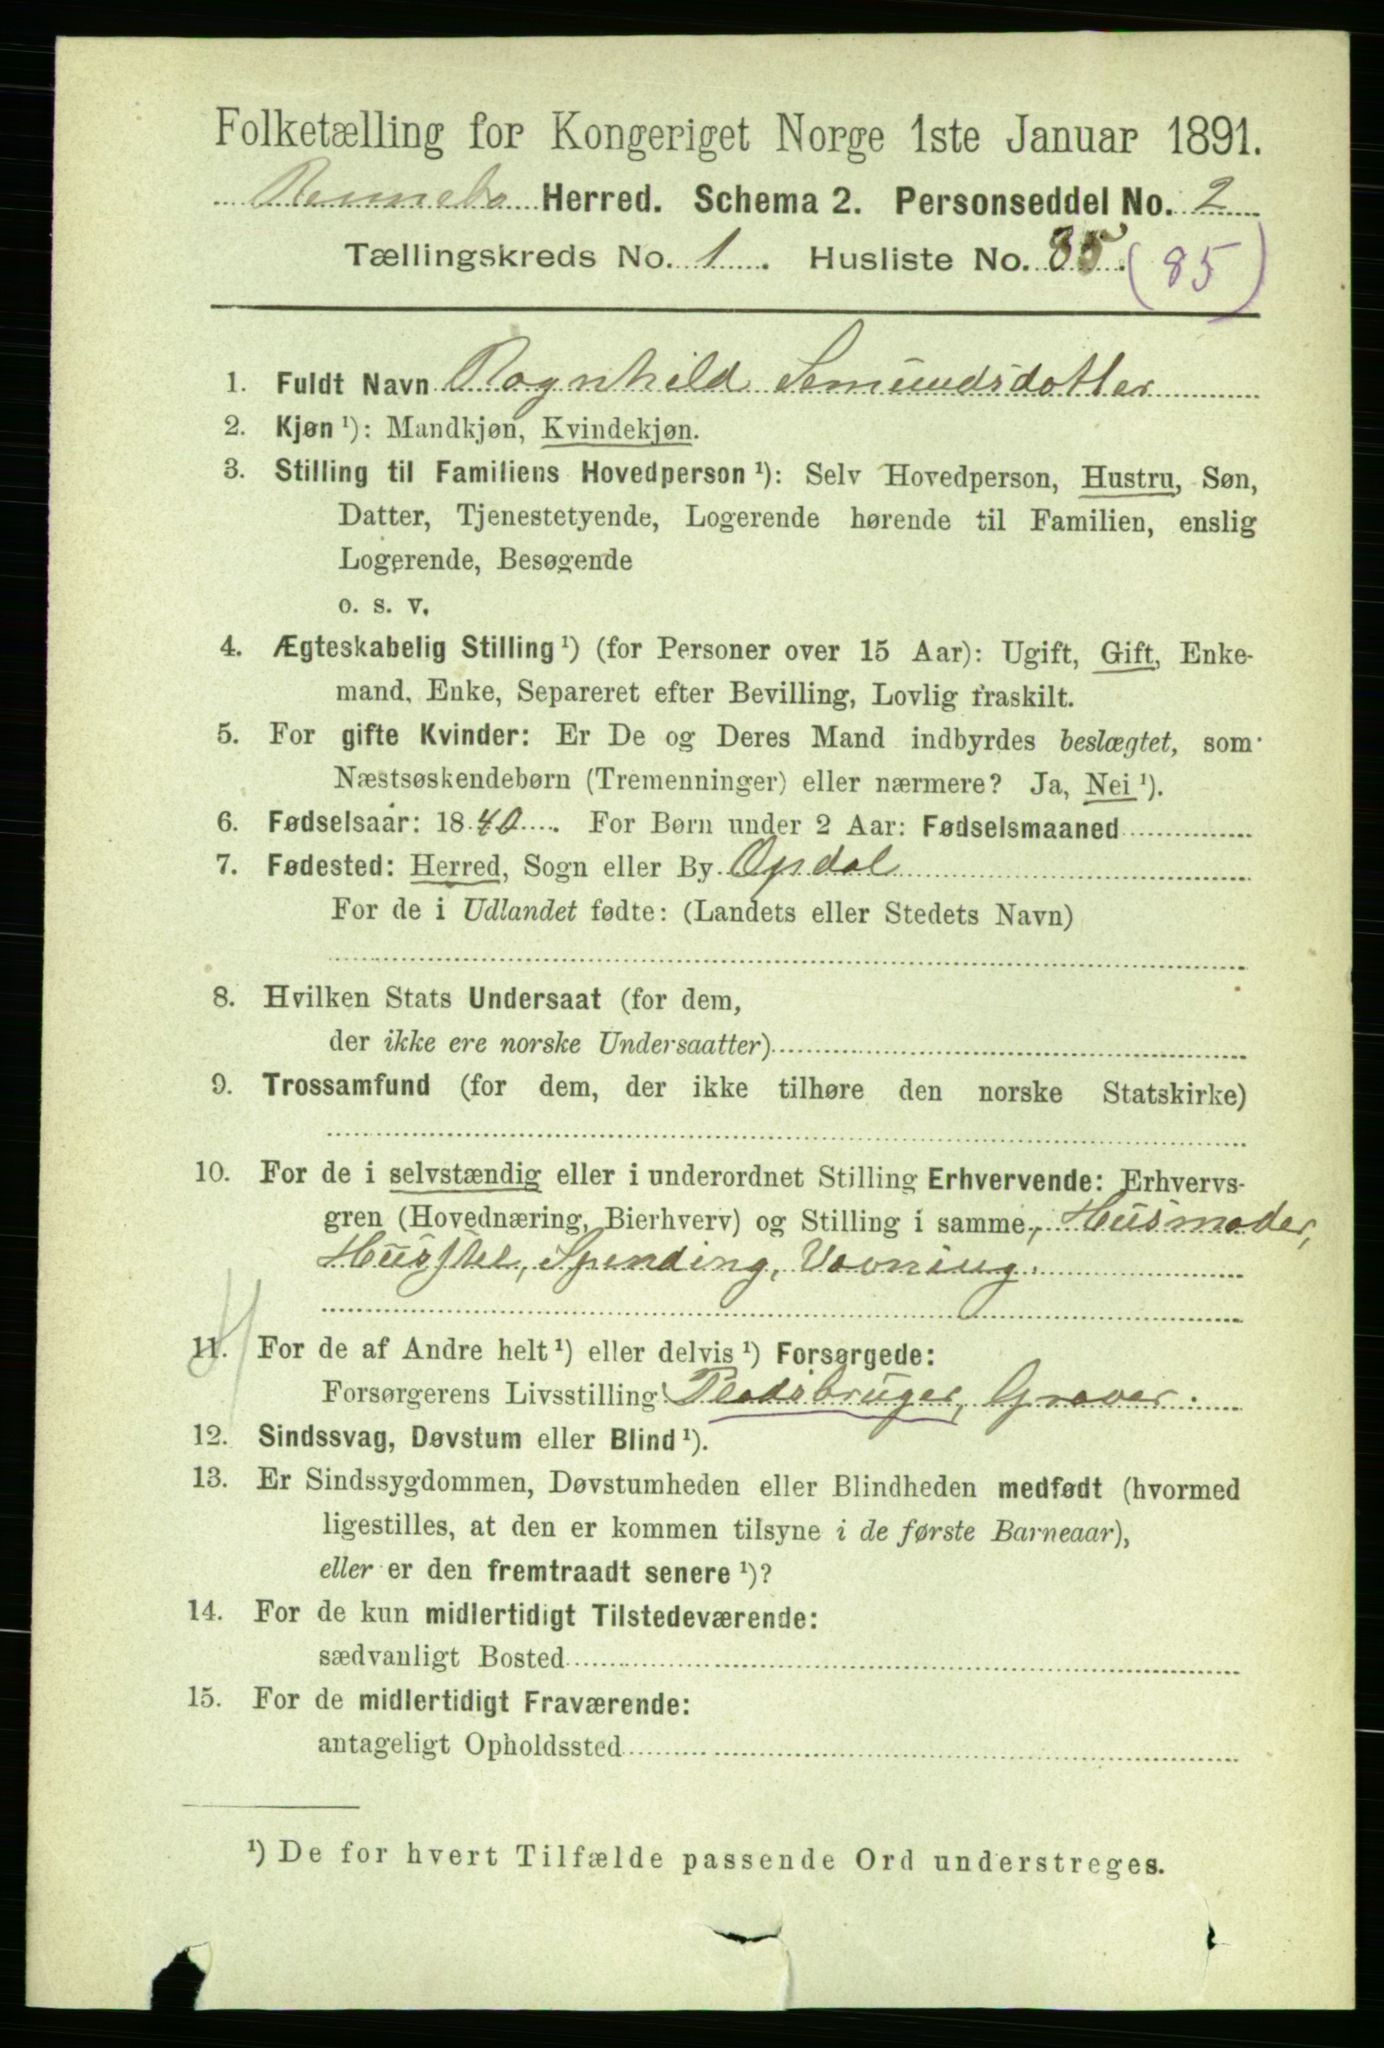 Folketælling for Kongeriget Norge 1ste Januar 1891.
Rennebo Herred. Schema 2. Personseddel No. 2
Tællingskreds No. 1. Husliste No. 85. (85)
1. Fuldt Navn Ragnhild Semundsdotter
2. Kjøn ¹): Mandkjøn, Kvindekjøn.
3. Stilling til Familiens Hovedperson ¹): Selv Hovedperson, Hustru, Søn,
Datter, Tjenestetyende, Logerende hørende til Familien, enslig
Logerende, Besøgende
o. s. v.
4. Ægteskabelig Stilling ¹) (for Personer over 15 Aar): Ugift, Gift, Enke-
mand, Enke, Separeret efter Bevilling, Lovlig fraskilt.
5. For gifte Kvinder: Er De og Deres Mand indbyrdes beslægtet, som
Næstsøskendebørn (Tremenninger) eller nærmere? Ja, Nei ¹).
6. Fødselsaar: 1840. For Børn under 2 Aar: Fødselsmaaned
7. Fødested: Herred, Sogn eller By Opdal
For de i Udlandet fødte: (Landets eller Stedets Navn)
8. Hvilken Stats Undersaat (for dem,
der ikke ere norske Undersaatter)
9. Trossamfund (for dem, der ikke tilhøre den norske Statskirke)
10. For de i selvstændig eller i underordnet Stilling Erhvervende: Erhvervs-
gren (Hovednæring, Bierhverv) og Stilling i samme, Husmoder,
Husstel, Spinding, Vævning.
11. For de af Andre helt ¹) eller delvis ¹) Forsørgede:
Forsørgerens Livsstilling Pladsbruger, Graver.
12. Sindssvag, Døvstum eller Blind ¹).
13. Er Sindssygdommen, Døvstumheden eller Blindheden medfødt (hvormed
ligestilles, at den er kommen tilsyne i de første Barneaar),
eller er den fremtraadt senere ¹)?
14. For de kun midlertidigt Tilstedeværende:
sædvanligt Bosted
15. For de midlertidigt Fraværende:
antageligt Opholdssted
¹) De for hvert Tilfælde passende Ord understreges.